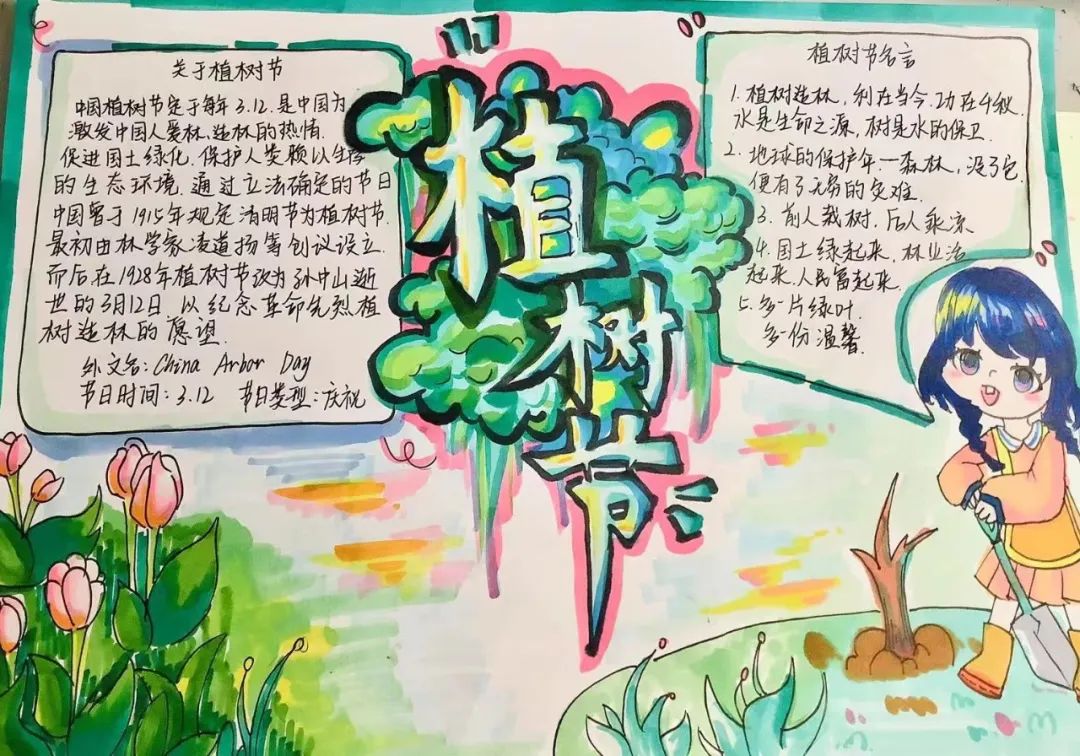 关于植树节
中国植树节定于每年3.12.是中国为
激发中国人爱林、造林的热情.
促进国土绿化.保护人类赖以生存
的生态环境.通过立法确定的节日
中国曾于1915年规定清明节为植树节.
最初由林学家凌道扬等创议设立.
而后在1928年植树节改为孙中山逝
世的3月12日.以纪念革命先烈植
树造林的愿望.
外文名:China Arbor Day
节日时间:3.12 节日类型:庆祝
植
树
节
植树节名言
1.植树造林,利在当今.功在千秋
水是生命之源,树是水的保卫.
2.地球的保护伞一森林,没了它.
便有了无穷的灾难.
3.前人栽树.后人乘凉
4.国土绿起来,林业活
起来.人民富起来.
5.多一片绿叶.
多一份温馨.